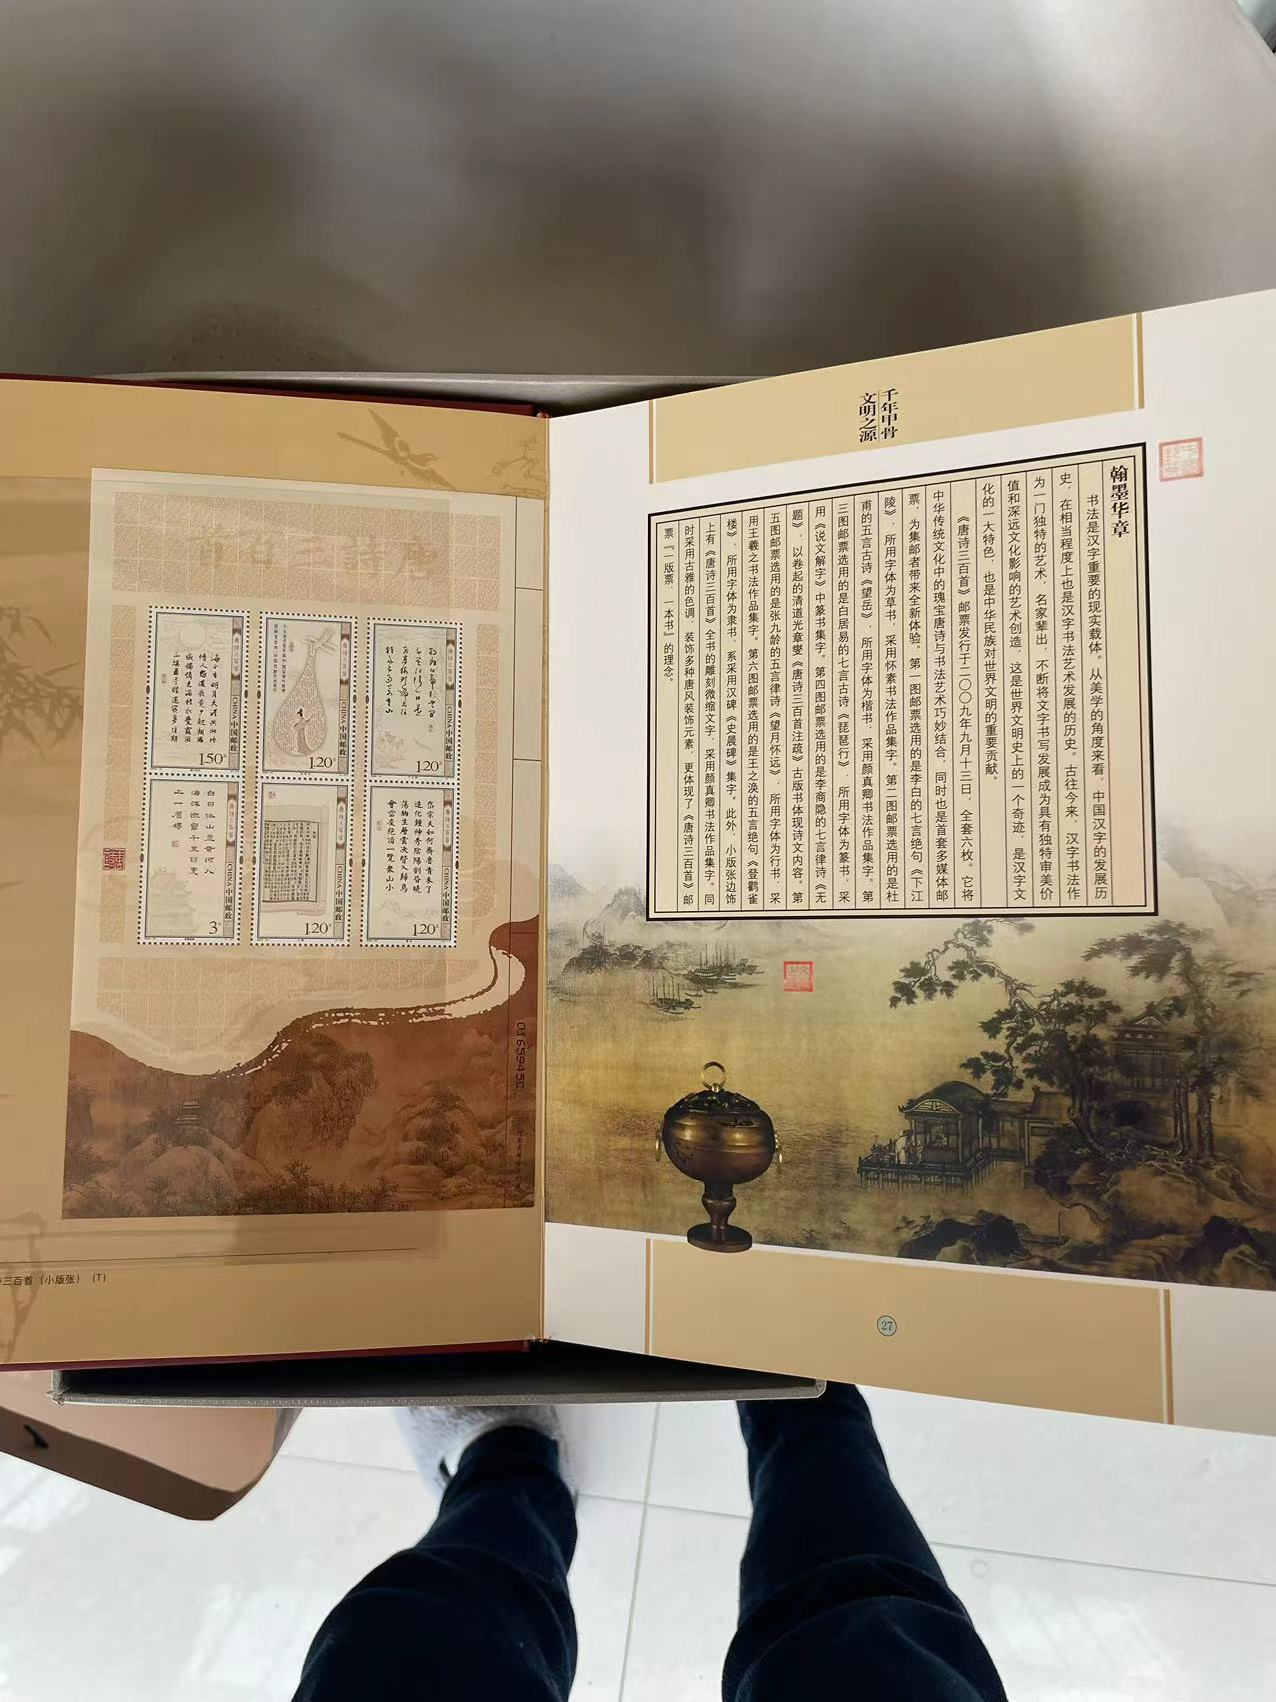 千年甲骨
文明之源
翰墨华章
书法是汉字重要的现实载体。从美学的角度来看,中国汉字的发展历
史,在相当程度上也是汉字书法艺术发展的历史。古往今来,汉字书法作
为一门独特的艺术,名家辈出,不断将文字书写发展成为具有独特审美价
值和深远文化影响的艺术创造,这是世界文明史上的一个奇迹,是汉字文
化的一大特色,也是中华民族对世界文明的重要贡献。
《唐诗三百首》邮票发行于二〇〇九年九月十三日,全套六枚。它将
中华传统文化中的瑰宝唐诗与书法艺术巧妙结合,同时也是首套多媒体邮
票,为集邮者带来全新体验。第一图邮票选用的是李白的七言绝句《下江
陵》,所用字体为草书,采用怀素书法作品集字。第二图邮票选用的是杜
甫的五言古诗《望岳》,所用字体为楷书,采用颜真卿书法作品集字。第
三图邮票选用的是白居易的七言古诗《琵琶行》,所用字体为篆书,采
用《说文解字》中篆书集字。第四图邮票选用的是李商隐的七言律诗《无
题》,以卷起的清道光章燮《唐诗三百首注疏》古版书体现诗文内容。第
五图邮票选用的是张九龄的五言律诗《望月怀远》,所用字体为行书,采
用王羲之书法作品集字。第六图邮票选用的是王之涣的五言绝句《登鹳雀
楼》,所用字体为隶书,系采用汉碑《史晨碑》集字。此外,小版张边饰
上有《唐诗三百首》全书的雕刻微缩文字,采用颜真卿书法作品集字。同
时采用古雅的色调,装饰多种唐风装饰元素,更体现了《唐诗三百首》邮
票“一版票,一本书”的理念。
27
CHINA 中国邮政
1.20元
CHINA 中国邮政
1.20元
CHINA 中国邮政
1.50元
岱宗夫如何齐鲁青未了
造化钟神秀阴阳割昏晓
荡胸生层云决眦入归鸟
会当凌绝顶一览众山小
CHINA 中国邮政
1.20元
CHINA 中国邮政
1.20元
白日依山尽黄河入
海流欲穷千里目更
上一层楼
CHINA 中国邮政
3元
三百首(小版张)(T)